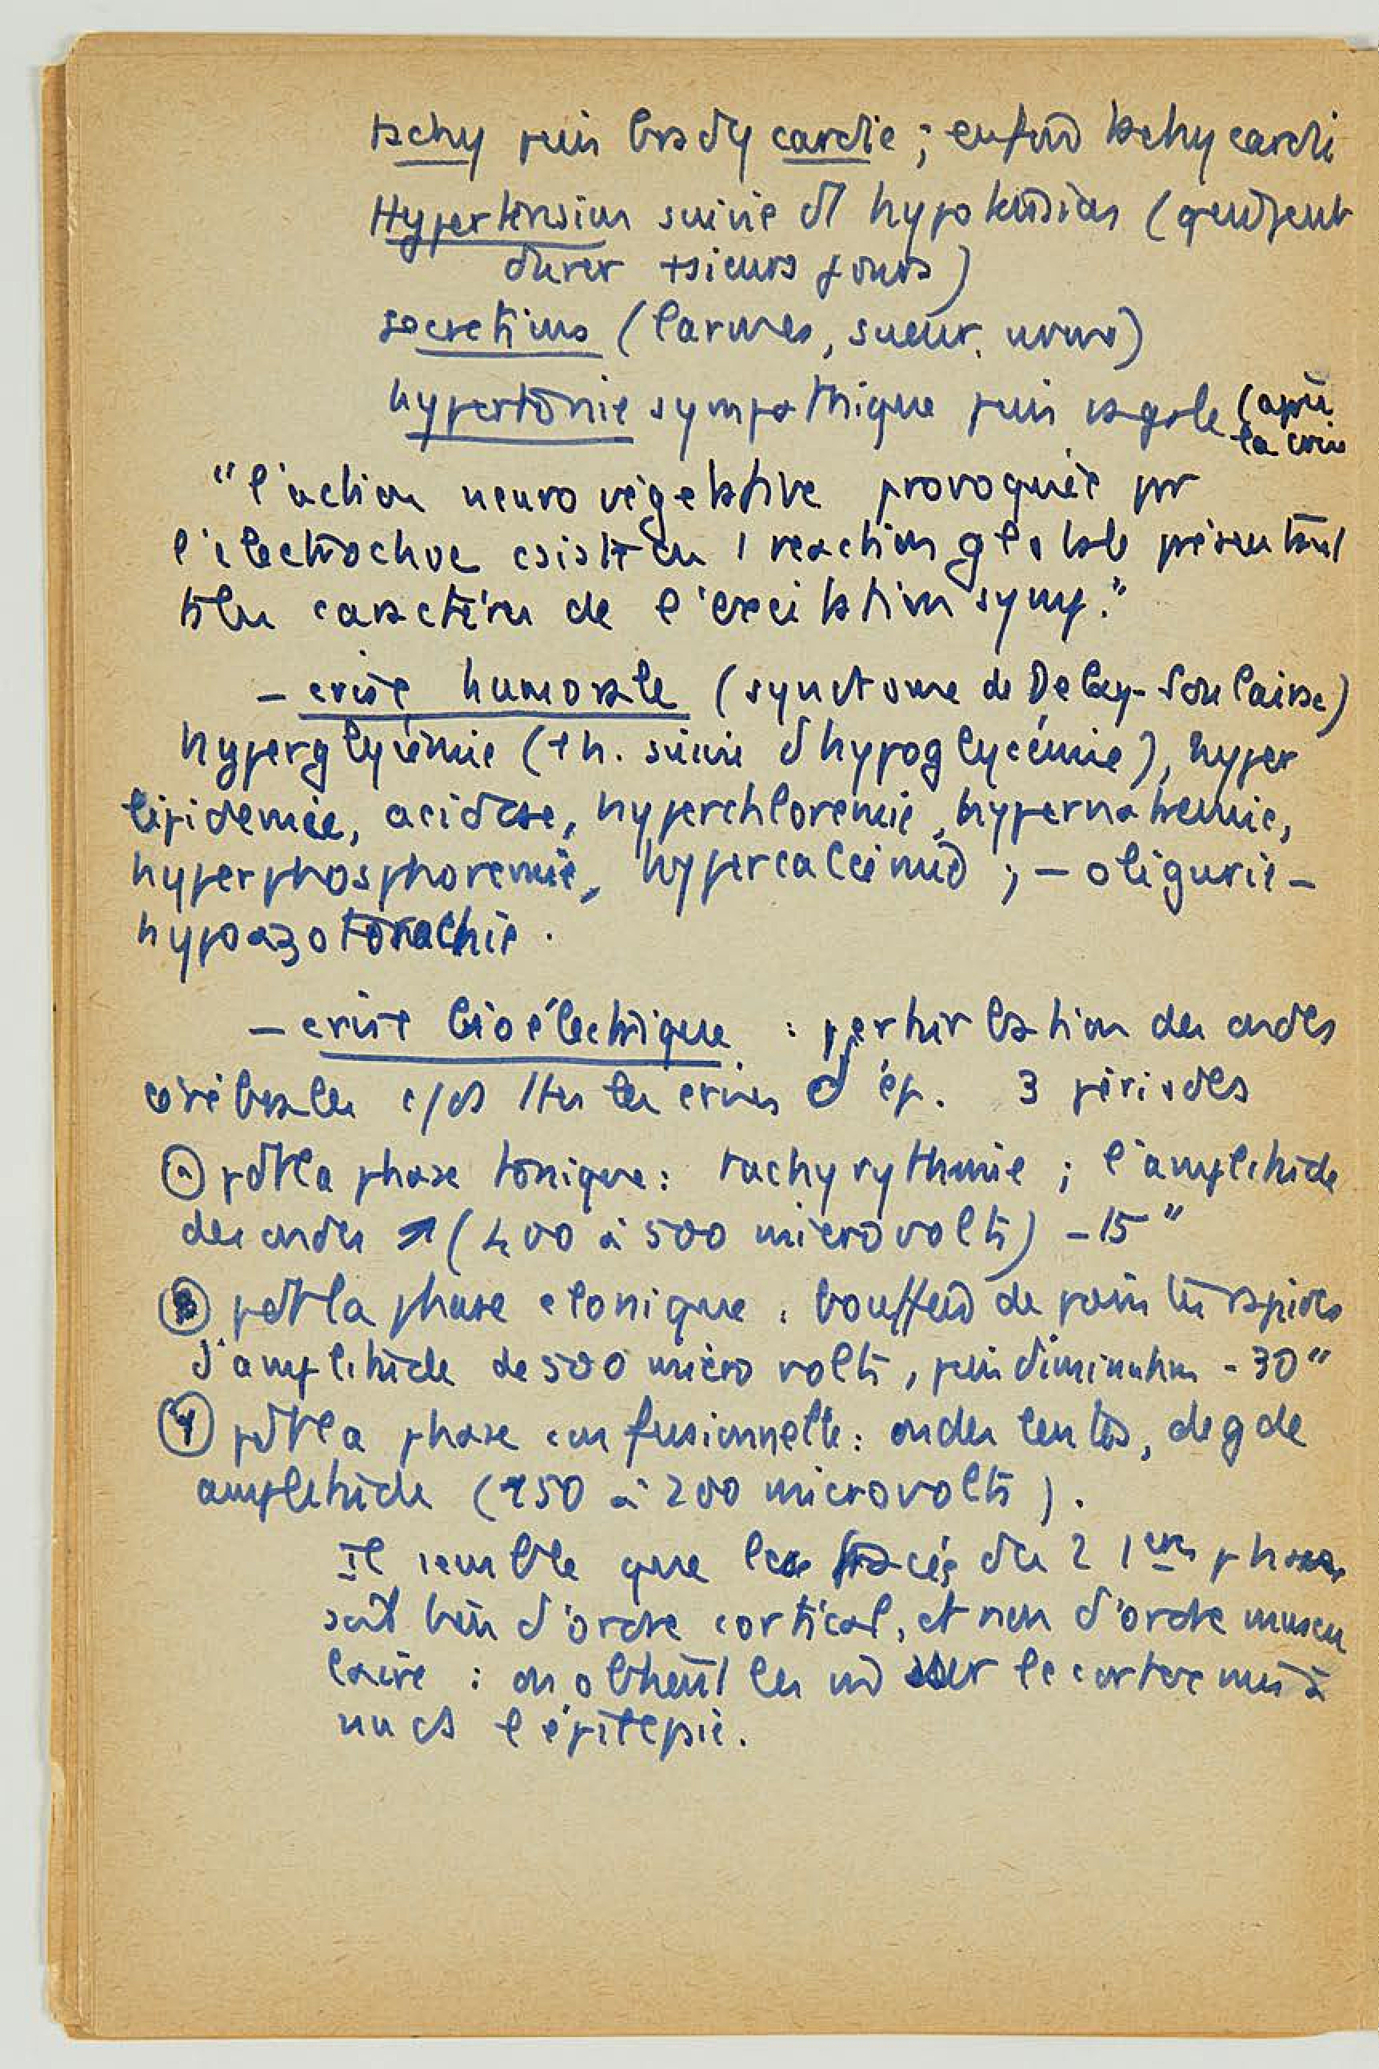 tachy puis bradycardie ; enfin tachycardi
Hypertension suivie d' hypotension (qui peut
durer +sieurs jours)
secretions (larmes, sueur, urine)
hypertonie sympathique puis vagale (après
la crise
"l'action neuro végétative provoquée par
l'électrochoc csiste en 1 reaction globale présentant
ts les caractères de l'excitation symp."
- crise humorale (syndome de Delay-Soulairac)
hyperglycémie (1 h. suivie d hypoglycémie), hyper
lipidemie, acidose, hyperchloremie, hypernatremie,
hyperphosphoremie, hypercalcemie ; - oligurie -
hypoazoturachie .
- crise bioélectrique : perturbation des ondes
cérébrales c/ds ttes les crises d' ép. 3 périodes
pdt la phase tonique : tachyrythmie ; l'amplitude
des ondes ↗ (400 à 500 microvolts) - 15"
pdt la phase clonique : bouffées de pointes rapides
d'amplitude de 500 micro volts, puis diminution - 30"
pdt la phase confusionnelle : ondes lentes, de gde
amplitude (150 à 200 microvolts ) .
Il semble que les tracés des 2 1ères phases
soit bien d'ordre cortical, et non d'ordre muscu
laire : on obtient les m̄ sur le cortex mis à
nu ds l épilepsie.